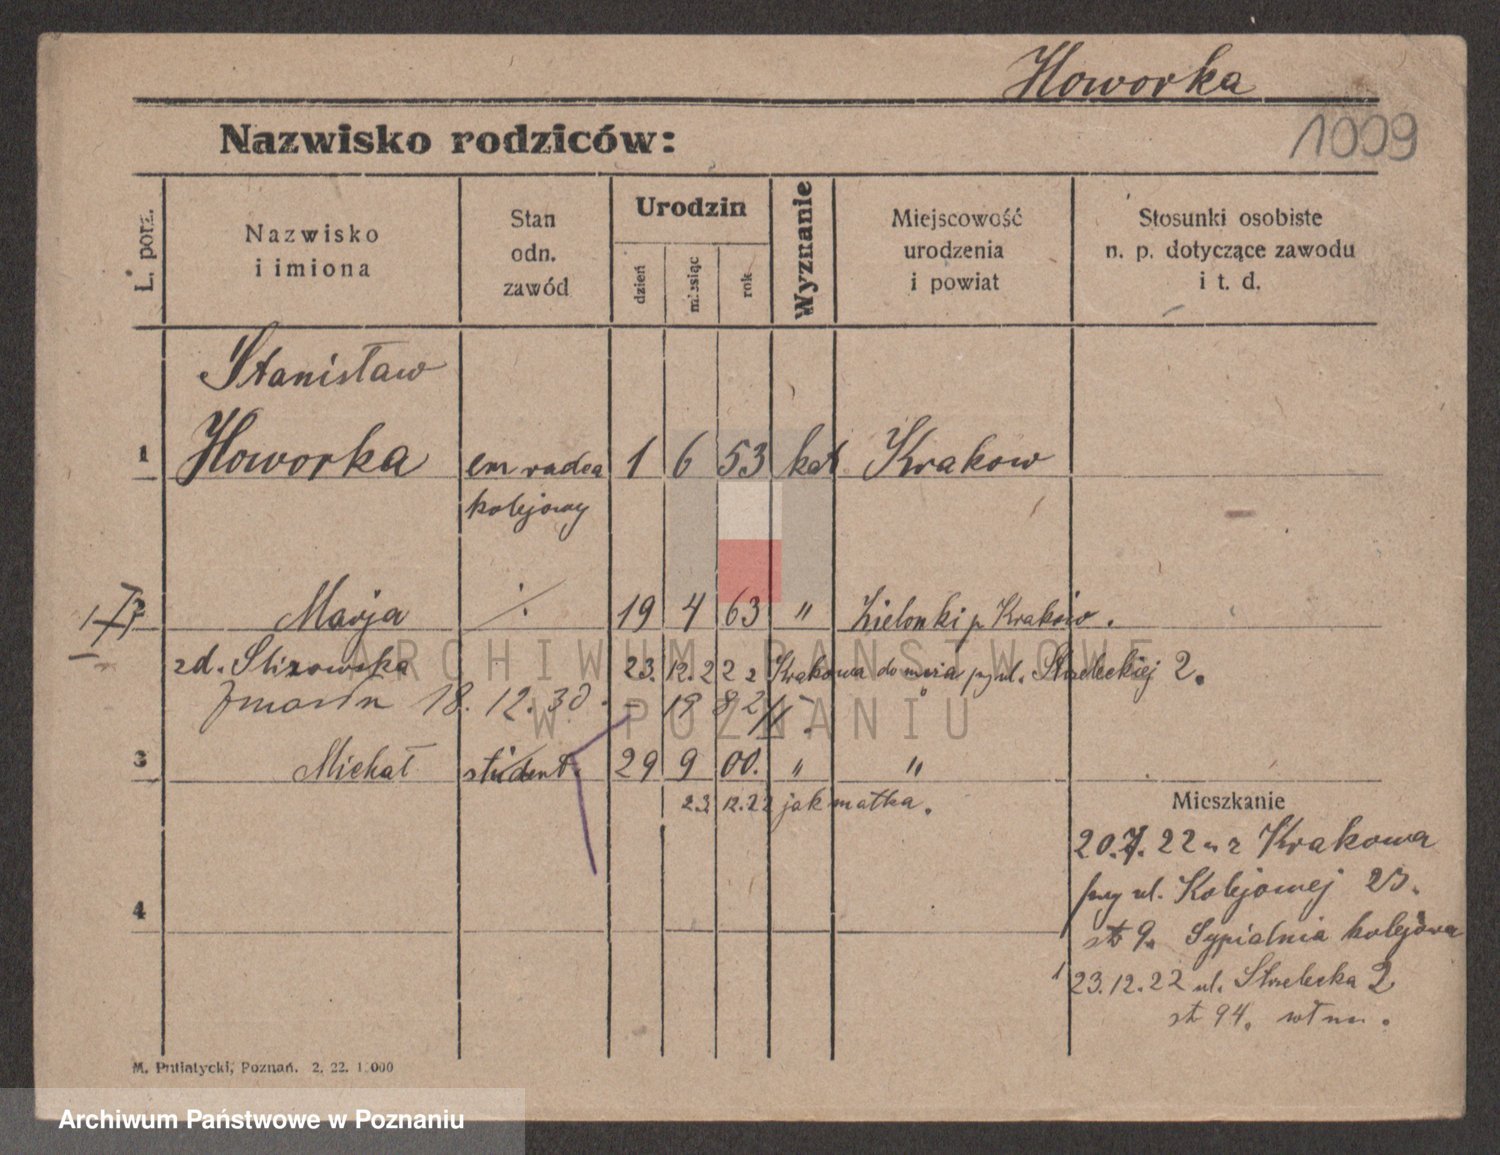 Howorka
1009
Nazwisko rodziców:
L. porz.
Nazwisko i imiona
Stan odn. zawód
Urodzin
dzień
miesiąc
rok
Wyznanie
Miejscowość urodzenia i powiat
Stosunki osobiste n. p. dotyczące zawodu i t. d.
Stanisław
1 Howorka em radca 1 6 53 kat Krakow
kolejowy
2 Marja ·/. 19 4 63 " Zielonki p Kraków.
zd. 23. 12. 22 z Krakowa do męża przy ul. Strzeleckiej 2.
18. 12. 30. - 1982/
3 Michał student 29 9 00. " "
23 12. 22 jak matka.
Mieszkanie
20.7.22 z Krakowa
przy ul. Kolejowej 23.
4
st 9. Sypialnia kolejowa
23.12.22 ul. Strzelecka 2
st 94. wł m.
M. Putiatycki, Poznań. 2. 22. 1.000
ARCHIWUM PAŃSTWOWE
W POZNANIU
Archiwum Państwowe w Poznaniu